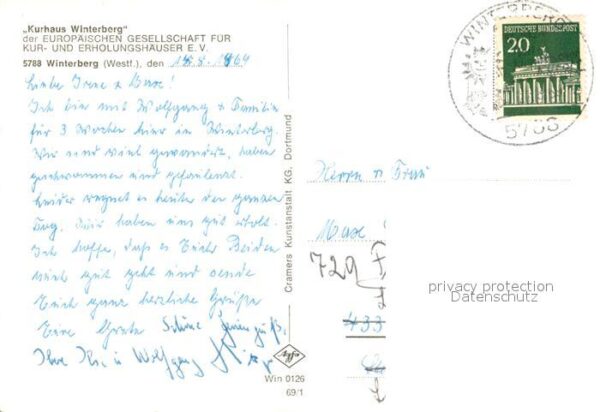 „Kurhaus Winterberg"
der EUROPÄISCHEN GESELLSCHAFT FÜR
KUR- UND ERHOLUNGSHÄUSER E. V.
5788 Winterberg (Westf.), den 18.8.1969
Liebe Irene +
Ich bin mit Wolfgang + Familie
für 3 Wochen hier in Winterberg.
Wir sind viel gewandert, haben
geschwommen und gefaulenzt.
Leider regnet es heute den ganzen
Tag. Wir haben uns gut erholt.
Ich hoffe, daß es Euch Beiden
auch gut geht und sende
Euch ganz herzliche Grüße
Eure Grete Schöne Feriengrüße
Ihre u. Wolfgang
Cramers Kunstanstalt KG, Dortmund
agfa
Win 0126
69/1
WINTERBERG
5788
DEUTSCHE BUNDESPOST
20
Herrn u Frau
729
433
privacy protection
Datenschutz